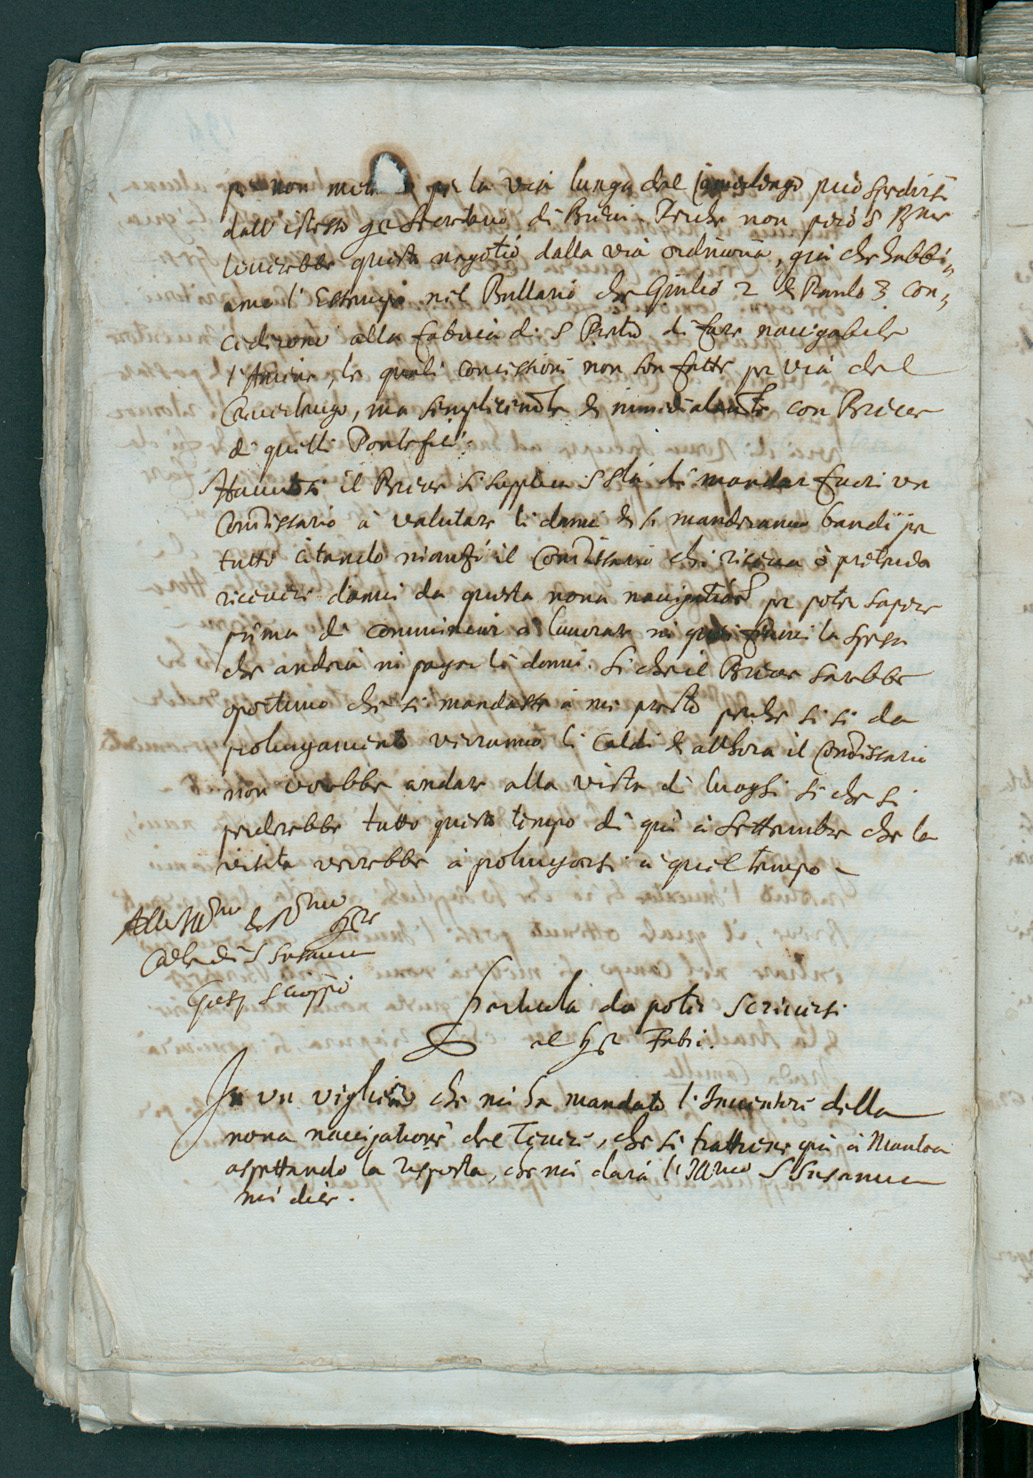 per non met per la via lunga del Camerlengo può spedirsi
dall' istesso Secretario di Brevi. Perche non però S. Bne
leverebbe questo negotio dalla via ordinaria, già che habbi=
amo l'Essempio nel Bullario che Giulio 2 et Paulo 3 con=
cederono alla Fabrica di S Pietro di fare navigabile
l'Aniene, le quali concessioni non son fatte per via del
Camerlengo, ma semplicemte et immediatamte con Breve
di quelli Pontefici.
Havutosi il Breve si supplica S Stà di mandar fuori un
Commissario à valutare li danni et si manderanno bandi per
tutto citando nianzi il Commissario chi riceva ò pretenda
ricevere danni da questa nova navigatione per poter sapere
prima di cominciar à lavorare ni fiumi la spesa
che andrà ni pagar li danni. Si che il Breve sarebbe
oportuno che si mandasse à mi presto perche si si da
prolungamento verranno li caldi et alhora il Commissario
non vorebbe andare alla vista di luoghi si che si
perderebbe tutto questo tempo di quà à Settembre che la
visita verebbe à prolungarsi a quel tempo
Alli Illmo et Rmo Sgre
Cardle di S Susanna
Gasp Scioppio
Scedula da poter scriversi
al Sgr Fabri.
In un viglietto che mi ha mandato l'Inventore della
nova navigatione del Tevere, che si trattiene quà à Mantoa
aspettando la risposta, che mi darà l'Illmo S Susanna
mi dice.